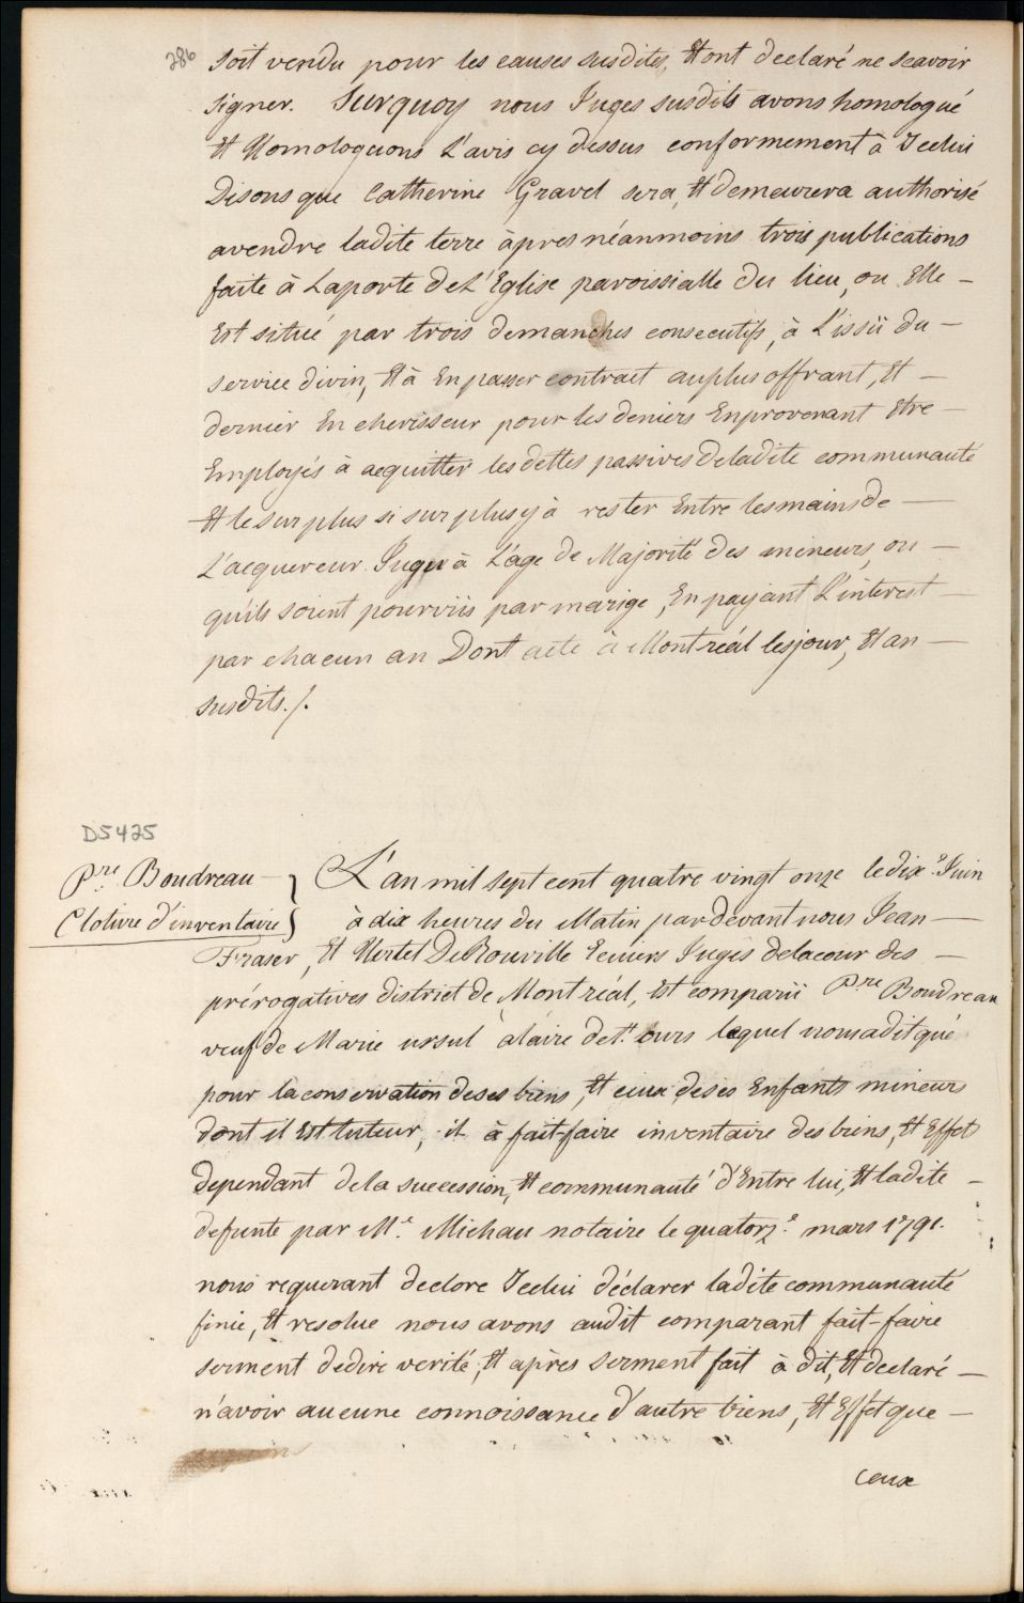 286 soit vendu pour les causes susdites, Et ont declaré ne scavoir
signer. Surquoy nous Juges susdits avons homologué
Et Homologuons L'avis cy dessus conformement à Jcelui
Disons que Catherine Gravel sera, Et demeurera authorisé
avendre ladite terre àpres néanmoins trois publications
faite à Laporte deL'Eglise paroissialle du lieu, ou Elle -
Est situé par trois demanches consecutifs, à L'issüe du -
service divin, Et à En passer contrait auplus offrant, Et -
dernier En cherisseur pour les deniers Enprovenant Etre -
Employés à acquitter les dettes passives deladite communauté
Et le surplus si surplus y à rester Entre lesmains de -
L'acquereur Juqu'à L'age de Majorité des mineurs, ou -
qu'ils soient pourvüs par marige, En payant L'interest -
par chacun an Dont acte à Montreál lesjour, Et an -
susdits./.
D5425
Pre Boudreau } L'an mil sept cent quatre vingt onze le dix e Juin
Cloture d'inventaire } à dix heures du Matin pardevant nous Jean -
Fraser, Et Hertel DeRouville Ecuiers Juges delacour des -
prérogatives district de Montreál, Est comparü Pre Boudreau
veuf de Marie ursul alaire de St. ours lequel nousaditqué
pour laconservation deses biens, Et ceux deses Enfants mineurs
dont il Est tuteur, il à fait-faire inventaire des biens, Et Effet
dependant dela succession, Et communauté d'Entre lui, Et ladite -
defunte par Me. Michau notaire le quatorze. mars 1791.
nous requerant declore Jcelui déclarer ladite communauté
finie, Et resolue nous avons audit comparant fait-faire
serment dedire verité, Et après serment fait à dit, Et declaré -
n'avoir aucune connoissance d'autre biens, Et Effet que -
Ceux